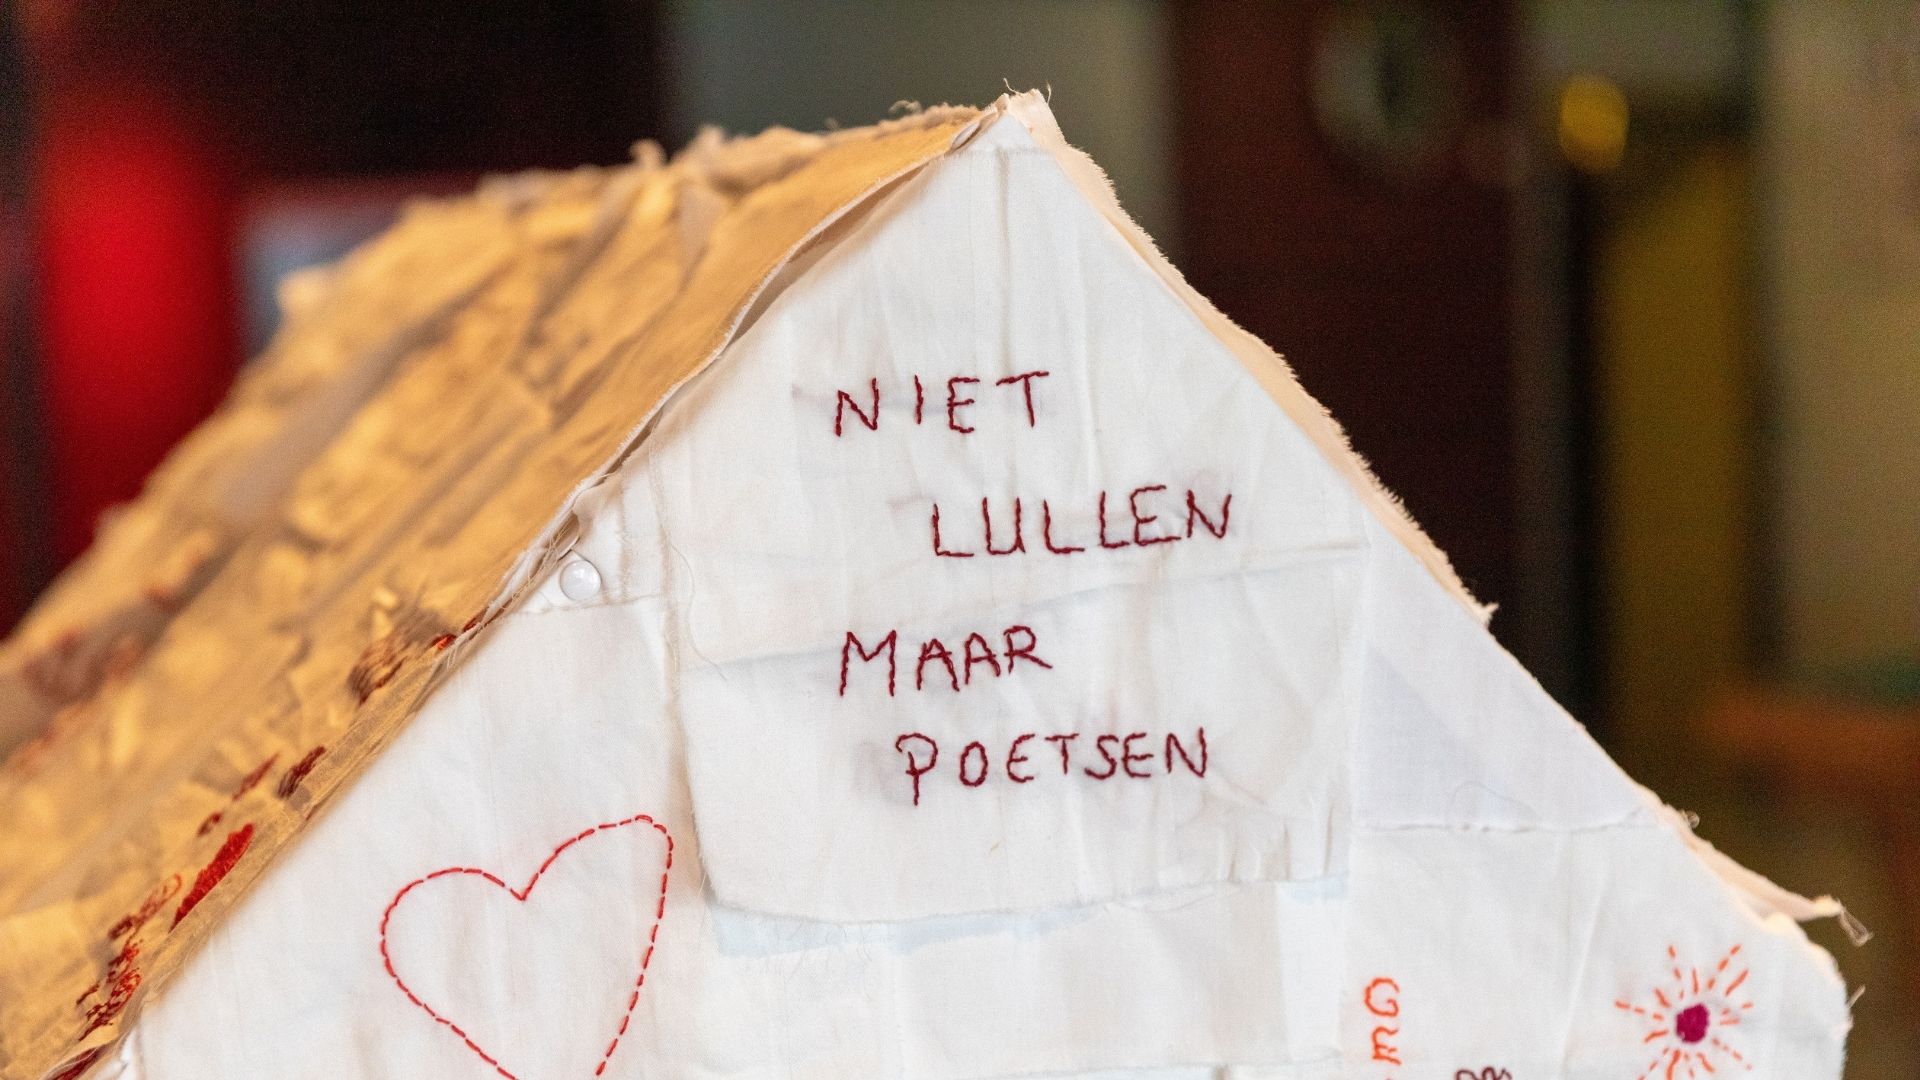 NIET
LULLEN
MAAR
POETSEN
GE